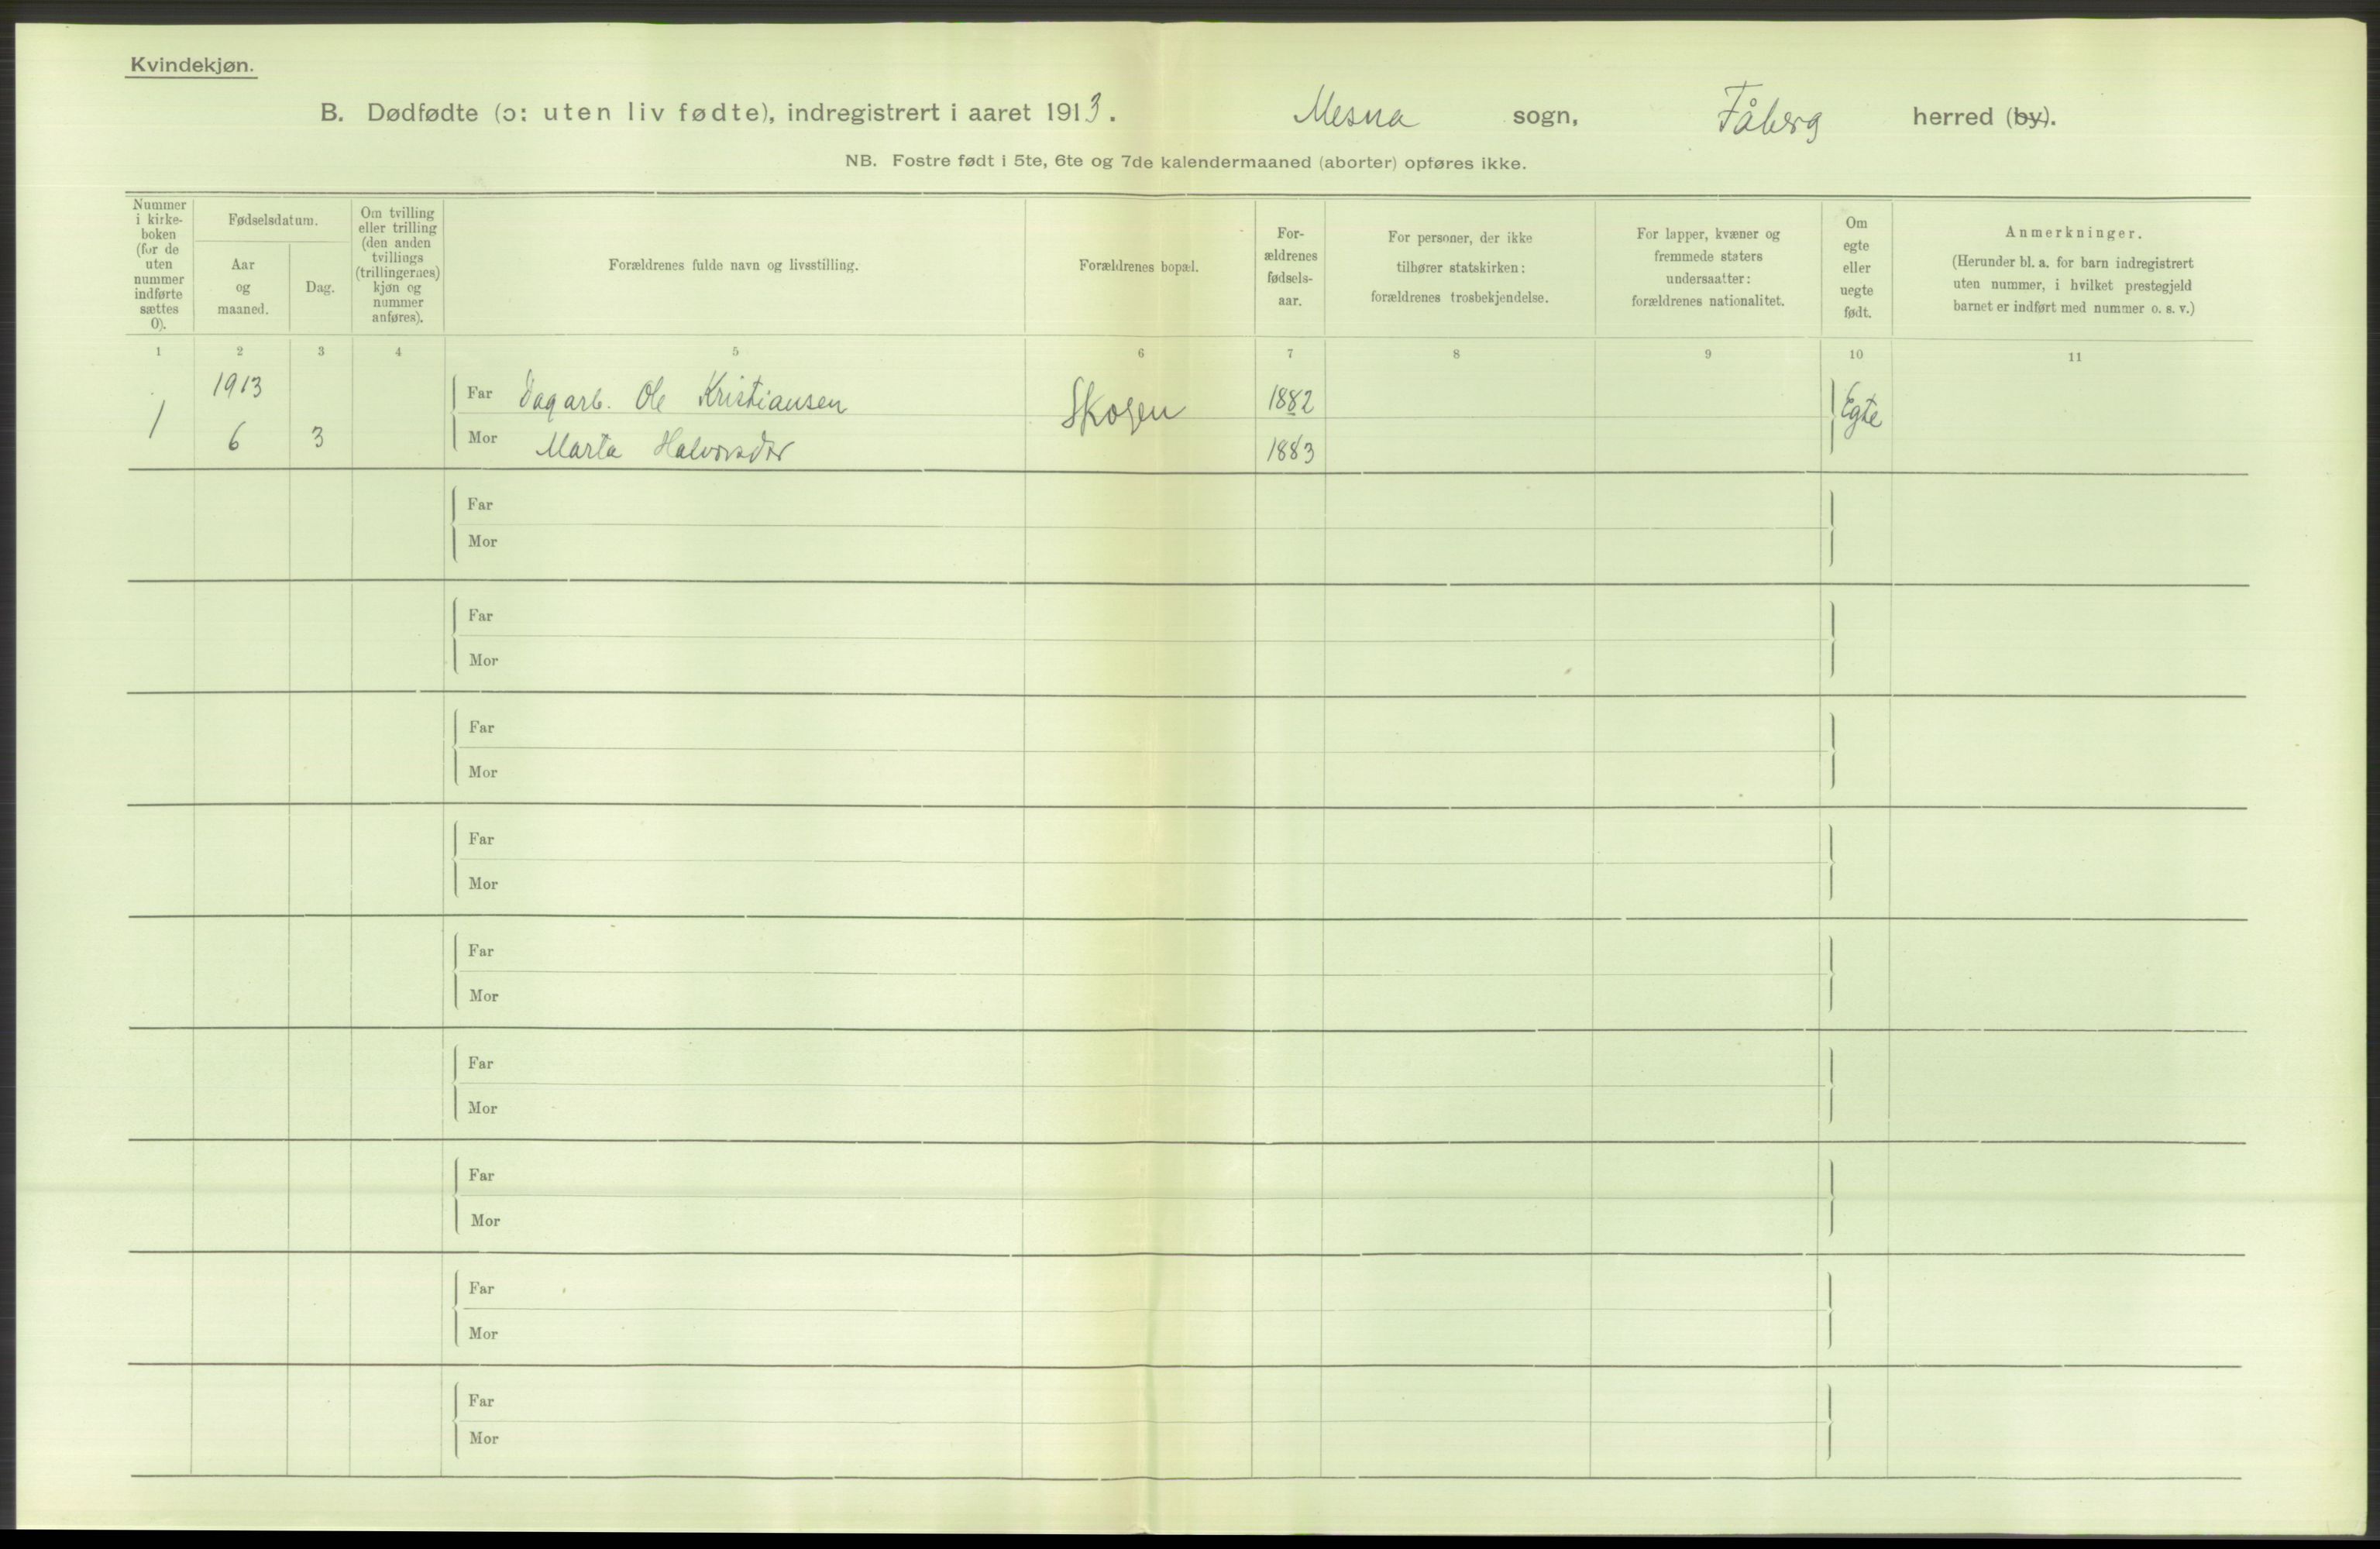 Kvindekjøn.
B. Dødfødte (ɔ: uten liv fødte), indregistrert i aaret 1913. Mesna sogn, Fåberg herred (by).
NB. Fostre født i 5te, 6te og 7de kalendermaaned (aborter) opføres ikke.
Nummer
i kirke-
boken
(for de
uten
nummer
indførte
sættes
0).
Fødselsdatum.
Aar
og
maaned.
Dag.
Om tvilling
eller trilling
(den anden
tvillings
(trillingernes)
kjøn og
nummer
anføres).
Forældrenes fulde navn og livsstilling.
Forældrenes bopæl.
For-
ældrenes
fødsels-
aar.
For personer, der ikke
tilhører statskirken:
forældrenes trosbekjendelse.
For lapper, kvæner og
fremmede staters
undersaatter:
forældrenes nationalitet.
Om
egte
eller
uegte
født.
Anmerkninger.
(Herunder bl. a. for barn indregistrert
uten nummer, i hvilket prestegjeld
barnet er indført med nummer o. s. v.)
1 2 3 4 5 6 7 8 9 10 11
1913 Far Dagarb. Ole Kristiansen Skogen 1882 Egte
1 6 3 Mor Marta Halvorsdtr 1883
Far
Mor
Far
Mor
Far
Mor
Far
Mor
Far
Mor
Far
Mor
Far
Mor
Far
Mor
Far
Mor